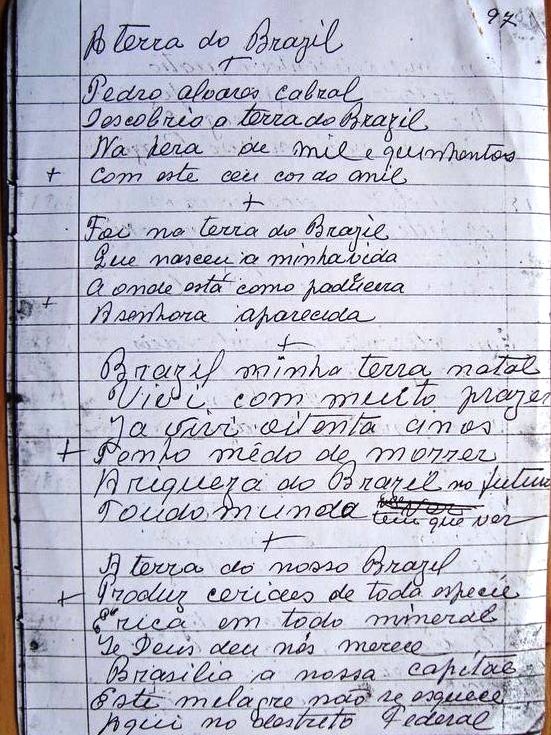 97
A terra do Brazil
Pedro alvares cabral
Descobrio a terra do Brazil
Na hera de mil e quinhentos
+ Com este ceu cor do anil
+
Foi na terra do Brazil
Que nasceu a minha vida
A onde está como padueira
+ A senhora aparecida
+
Brazil minha terra natal
Vivi com muito prazer
Ja vivi oitenta anos
+ Tenho mêdo de morrer
A riqueza do Brazil no futuro
Toudo mundo tem que ver
+
A terra do nosso Brazil
+ Produz ceriaes de toda especie
E rica em todo mineral
Se Deus deu nós merece
Brasilia a nossa capital
Este milagre não se esquece
Aqui no destreto Federal